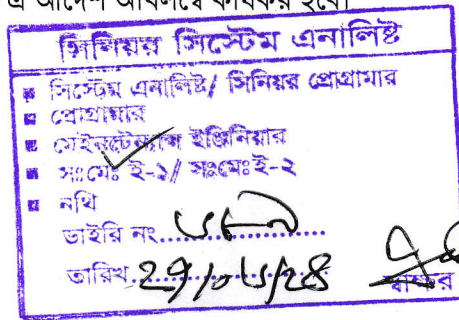 এ আদেশ অবিলম্বে কার্যকর হবে।
সিনিয়র সিস্টেম এনালিষ্ট
সিস্টেম এনালিষ্ট/ সিনিয়র প্রোগ্রামার
প্রোগ্রামার
মেইনটেন্যান্স ইঞ্জিনিয়ার
সঃমেঃ ই-১/ সঃমেঃই-২
নথি
ডাইরি নং
তারিখ
স্বাক্ষর